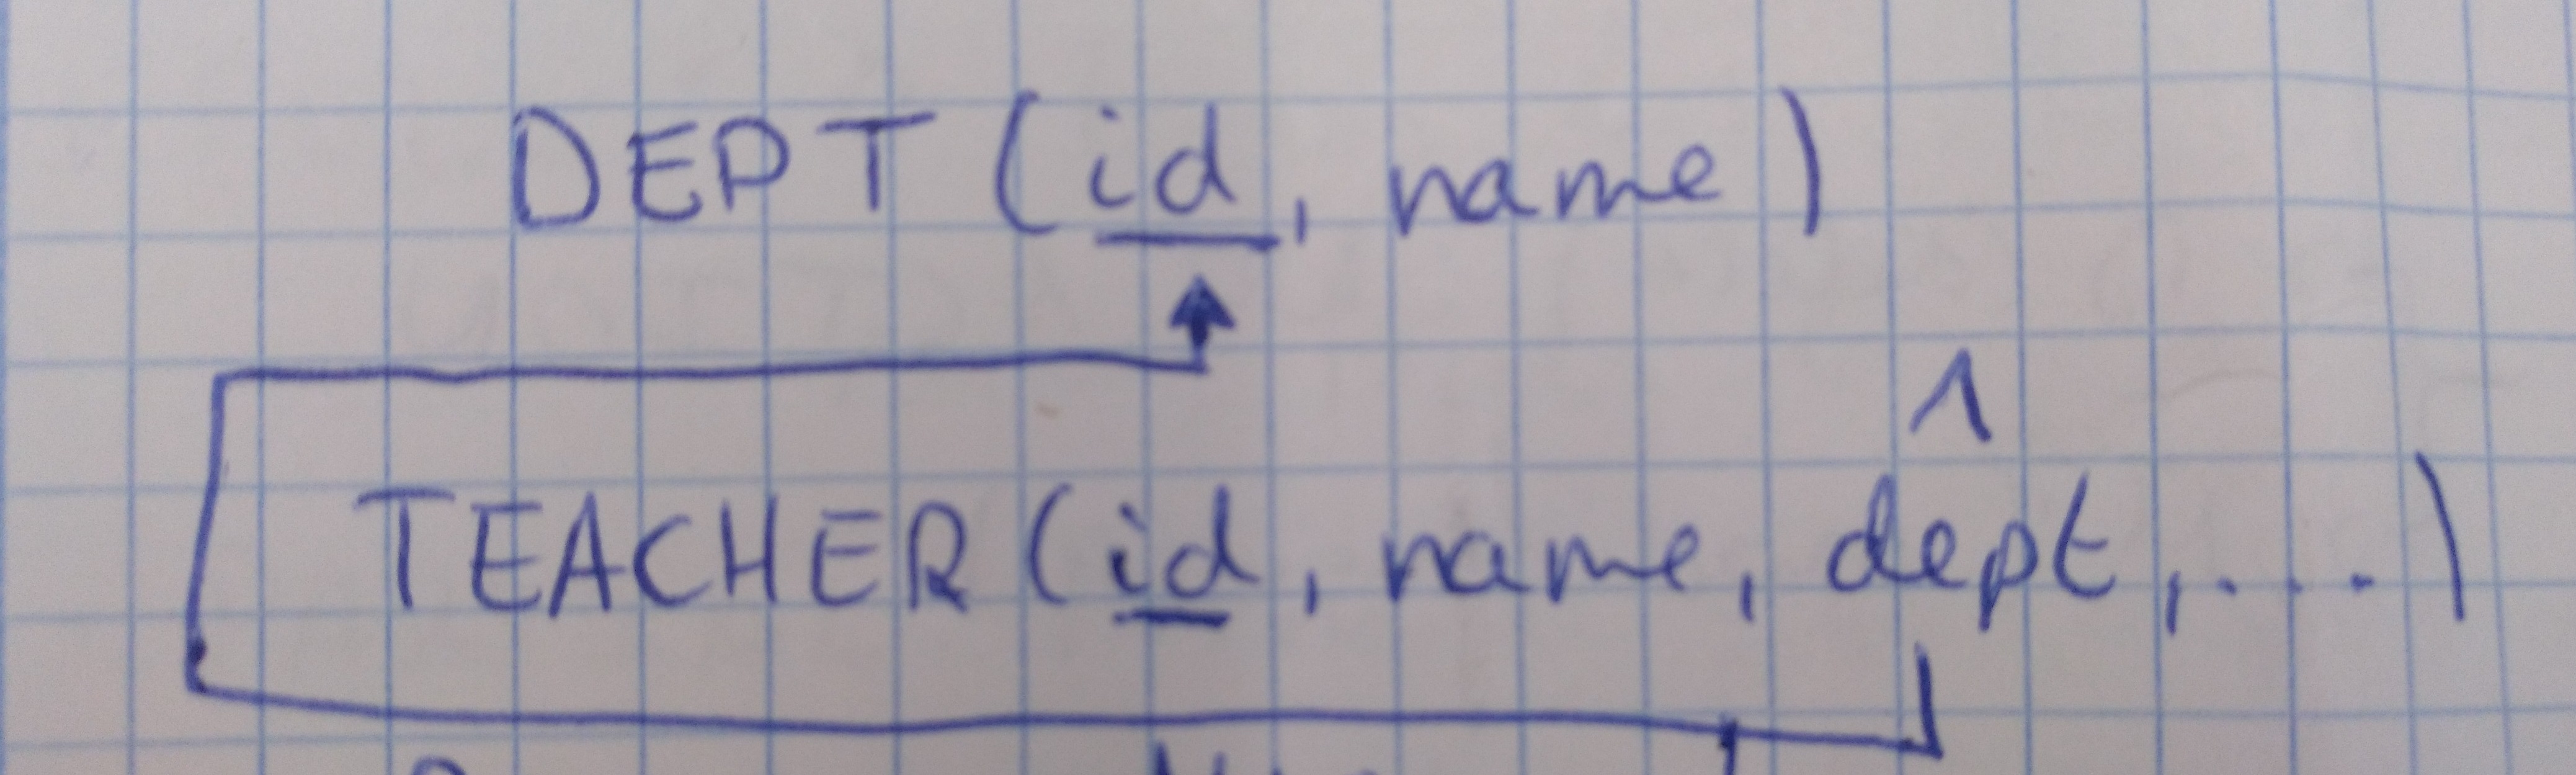 DEPT (id, name)
TEACHER (id, name, dept, ...)